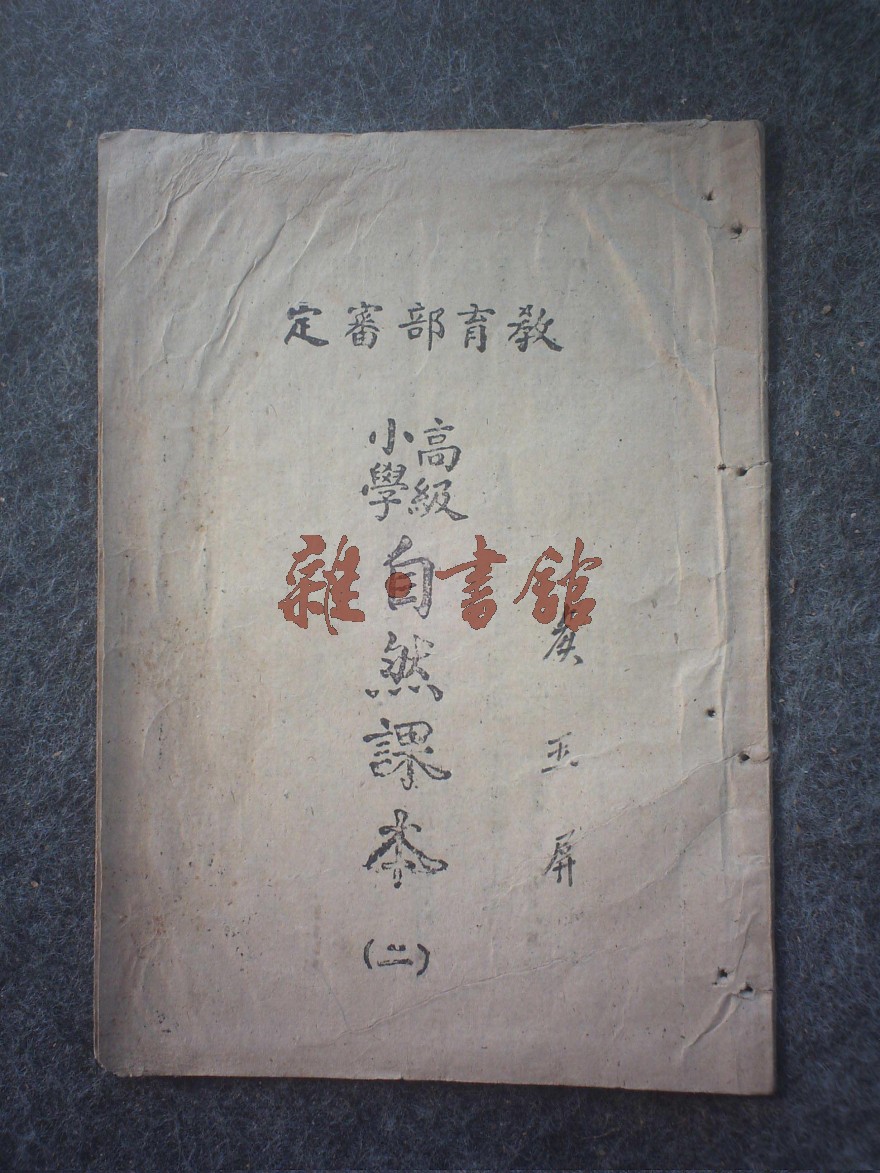 教育部審定
高級
小學
自然課本
(二)
玉屏
雜·書館